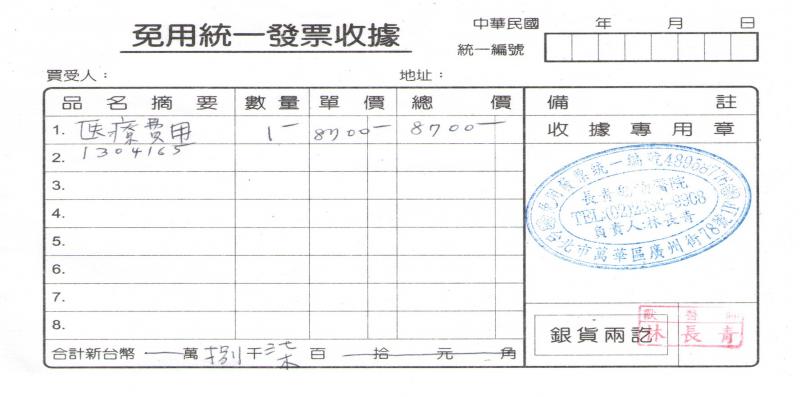 免用統一發票收據
中華民國 年 月 日
統一編號
買受人： 地址：
品名摘要 數量 單價 總價 備註
1. 医療費用 1- 8700- 8700-
收據專用章
2. 1304165
3.
4.
5.
6.
7.
8.
免用發票統一編號48958776
長青動物醫院
TEL:(02)2336-9908
負責人:林長青
台北市萬華區廣州街78號
銀貨兩訖
林長青
合計新台幣 — 萬 捌 千 柒 百 — 拾 — 元 — 角